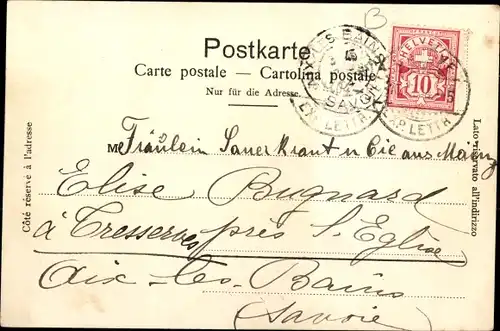 B
Postkarte
Carte postale — Cartolina postale
Nur für die Adresse.
AIX-LES-BAINS
SAVOIE
HELVETIA
10
EXP. LETTR.
Côté réservé à l'adresse
Lato riservato all'indirizzo
M Fräulein Sauerkraut u Cie aus Mainz
Elise Bugnard
à Tresserves près l'Eglise
Aix-les-Bains
(Savoie)